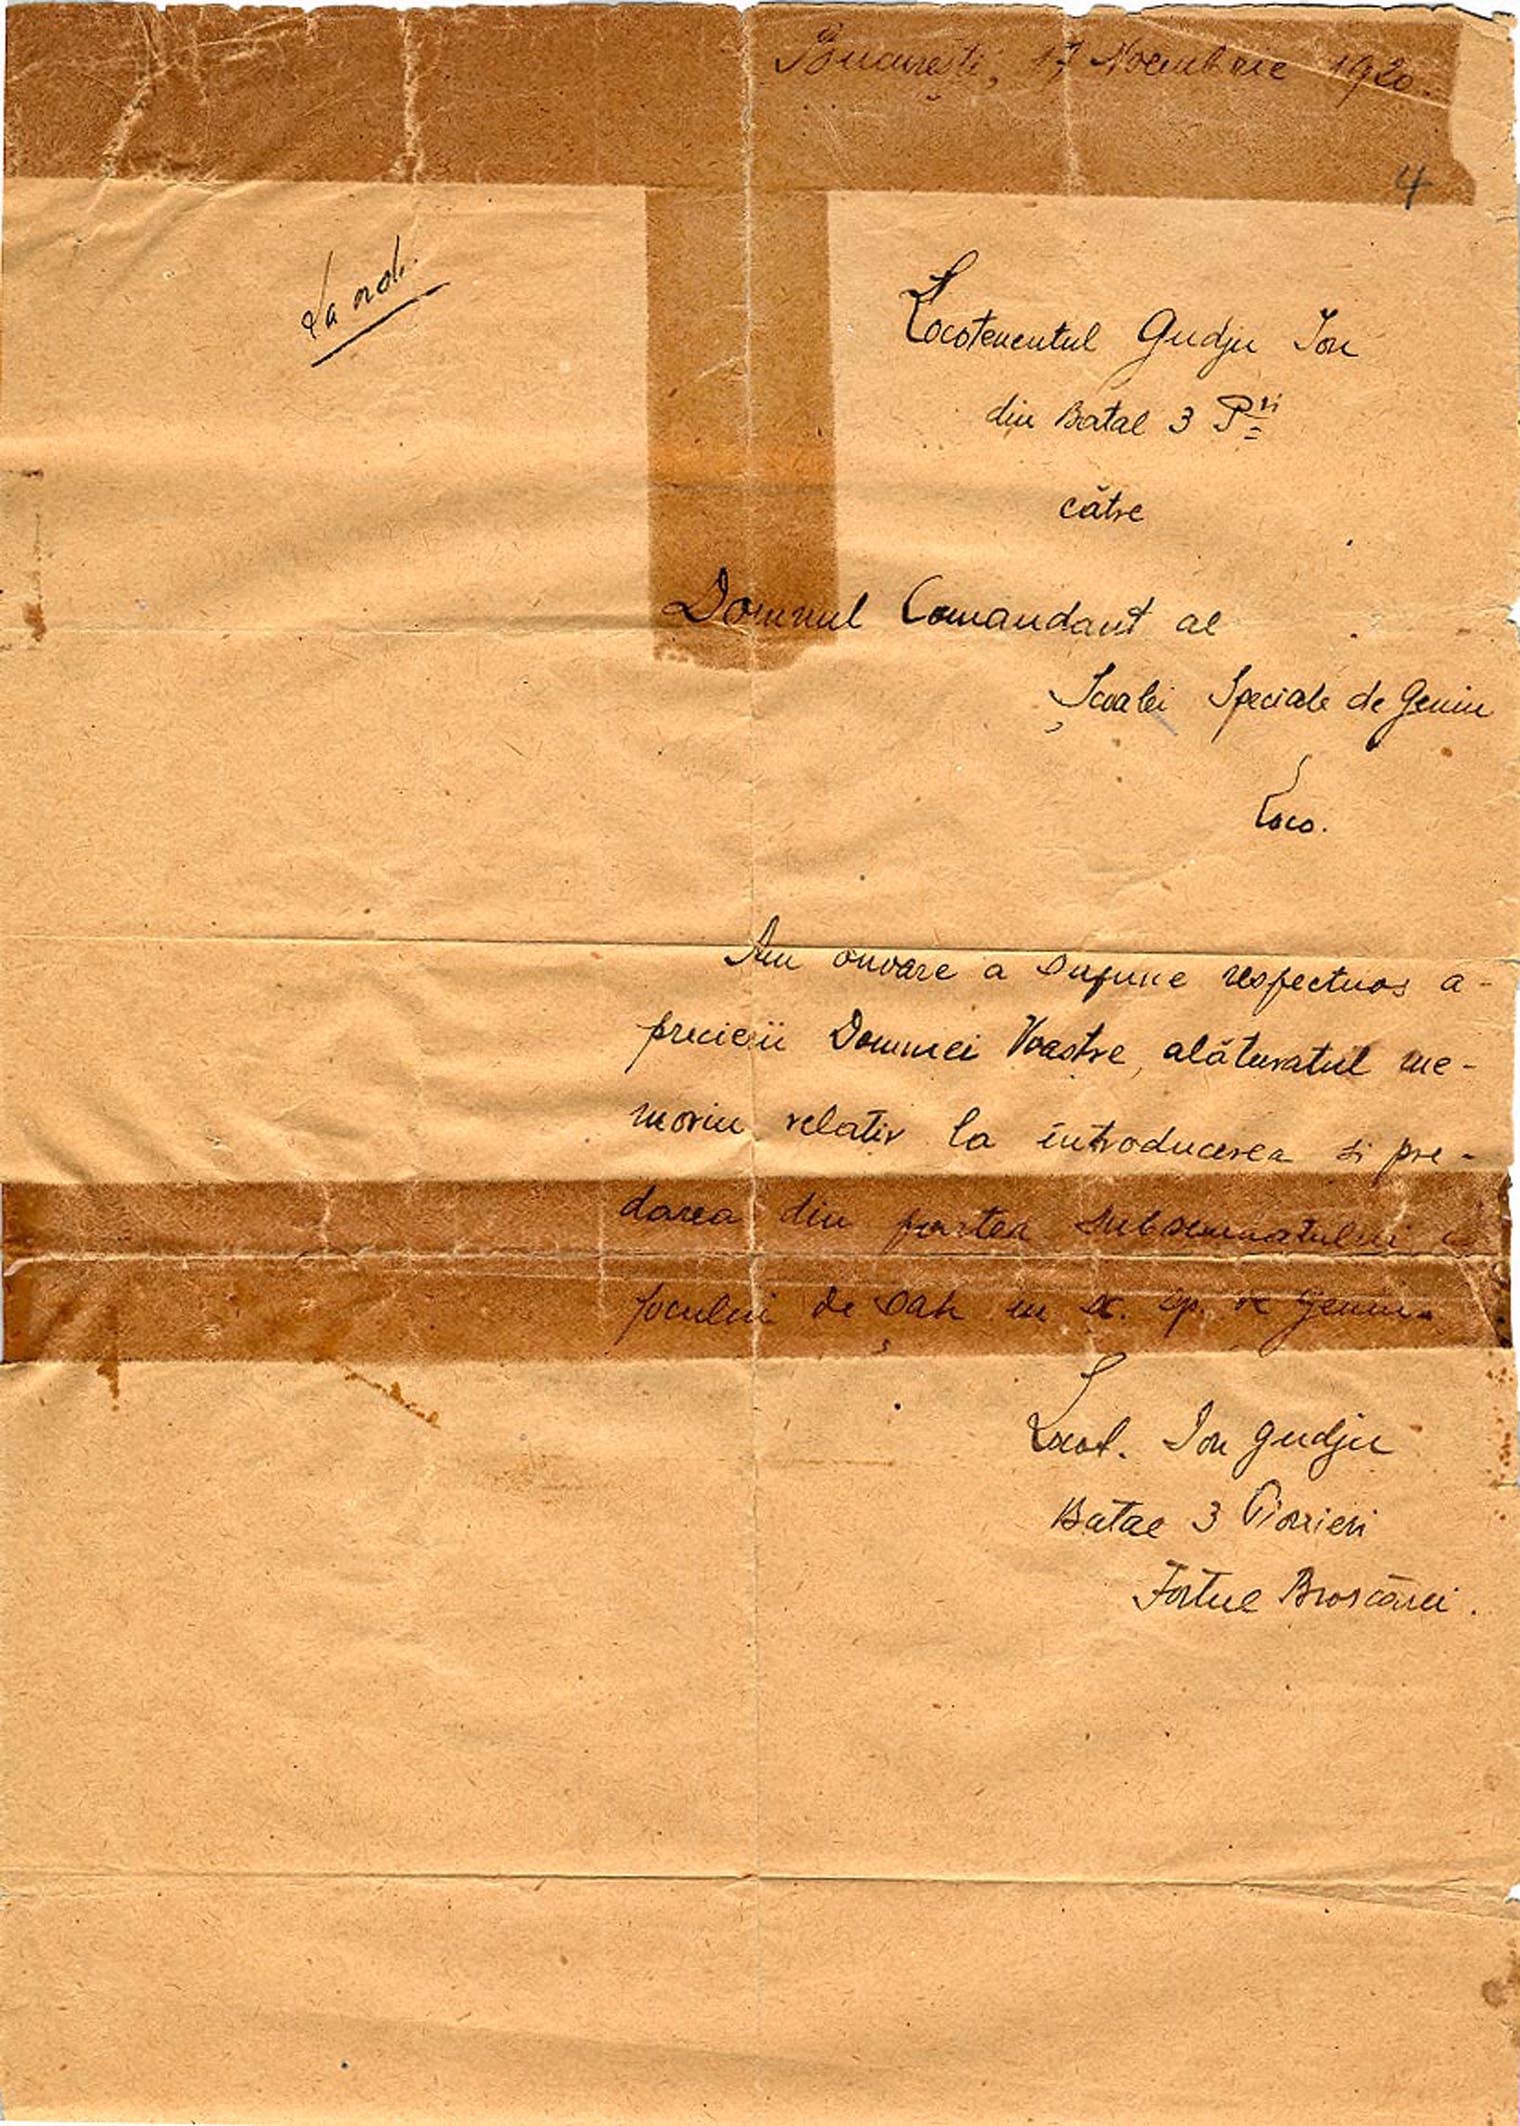 București, 17 Noembrie 1920.
4
La ord.
Locotenentul Gudju Ion
din Batal 3 Pri
către
Domnul Comandant al
Școalei Speciale de Geniu
Loco.
Am onoare a supune respectuos a-
precierii Domnei Voastre, alăturatul me-
moriu relativ la introducerea si pre-
darea din partea subsemnatului a
jocului de șah in Sc. Sp. de Geniu.
Locot. Ion Gudju
Batal 3 Pionieri
Fortul Broscărei.